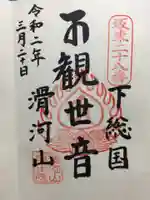 坂東二十八番
下総国
観世音
滑河山
令和二年
三月二十日